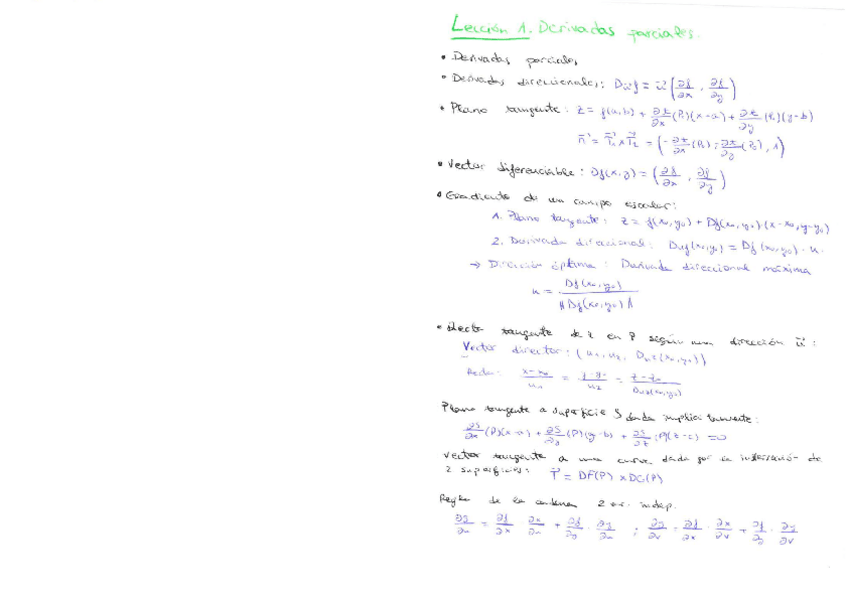 Lección 1. Derivadas parciales.
• Derivadas parciales
• Derivadas direccionales: Dūf = ū (∂f/∂x , ∂f/∂y)
• Plano tangente: z = f(a,b) + ∂z/∂x (P₀)(x-a) + ∂z/∂y (P₀)(y-b)
n⃗ = T⃗₁ x T⃗₂ = (-∂z/∂x (P₀), ∂z/∂y (P₀), 1)
• Vector diferenciable: Df(x,y) = (∂f/∂x , ∂f/∂y)
• Gradiente de un campo escalar:
1. Plano tangente: z = f(x₀,y₀) + Df(x₀,y₀)·(x-x₀, y-y₀)
2. Derivada direccional: Duf(x₀,y₀) = Df(x₀,y₀)·u.
→ Dirección óptima: Derivada direccional máxima
u = Df(x₀,y₀) / ||Df(x₀,y₀)||
• Recta tangente de z en P según una dirección u⃗:
Vector director: (u₁, u₂, Duz(x₀,y₀))
Recta: x-x₀/u₁ = y-y₀/u₂ = z-z₀/Duz(x₀,y₀)
Plano tangente a superficie S dada implícitamente:
∂S/∂x (P)(x-a) + ∂S/∂y (P)(y-b) + ∂S/∂z (P)(z-c) = 0
Vector tangente a una curva dada por la intersección de
2 superficies: T⃗ = DF(P) x DG(P)
Regla de la cadena 2 var. indep.
∂g/∂u = ∂f/∂x · ∂x/∂u + ∂f/∂y · ∂y/∂u ; ∂g/∂v = ∂f/∂x · ∂x/∂v + ∂f/∂y · ∂y/∂v